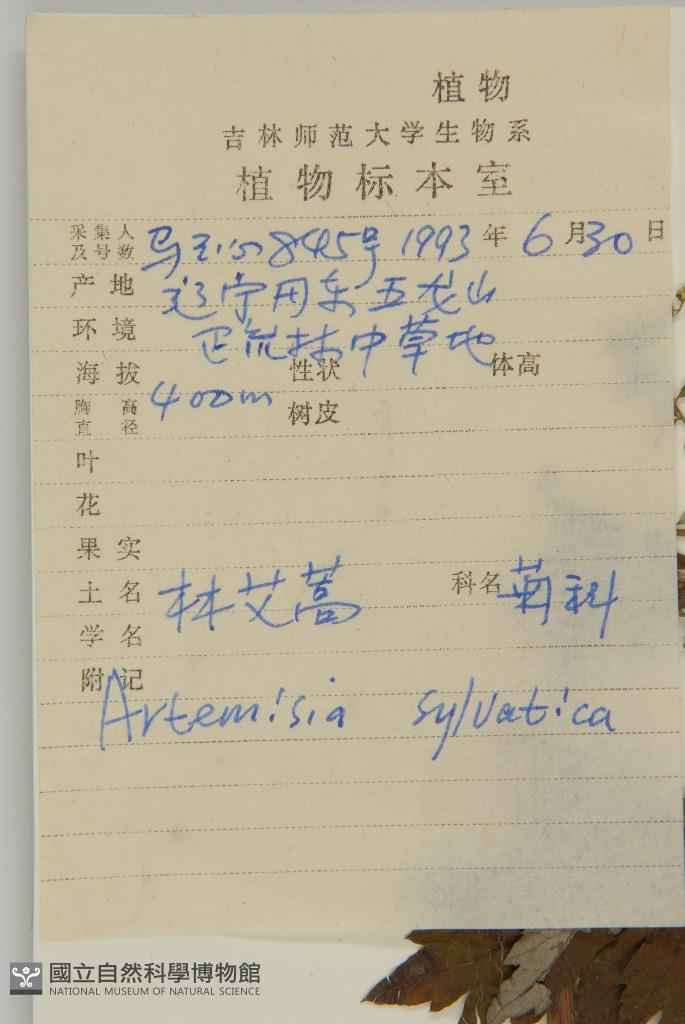 植物
吉林师范大学生物系
植物标本室
采集人及号数 845号 1993年6月30日
产地 辽宁丹东五龙山
环境 林中草地
海拔 400m 性状 体高
胸高直径 树皮
叶
花
果实
土名 林艾蒿 科名 菊科
学名
附记
Artemisia sylvatica
國立自然科學博物館
NATIONAL MUSEUM OF NATURAL SCIENCE